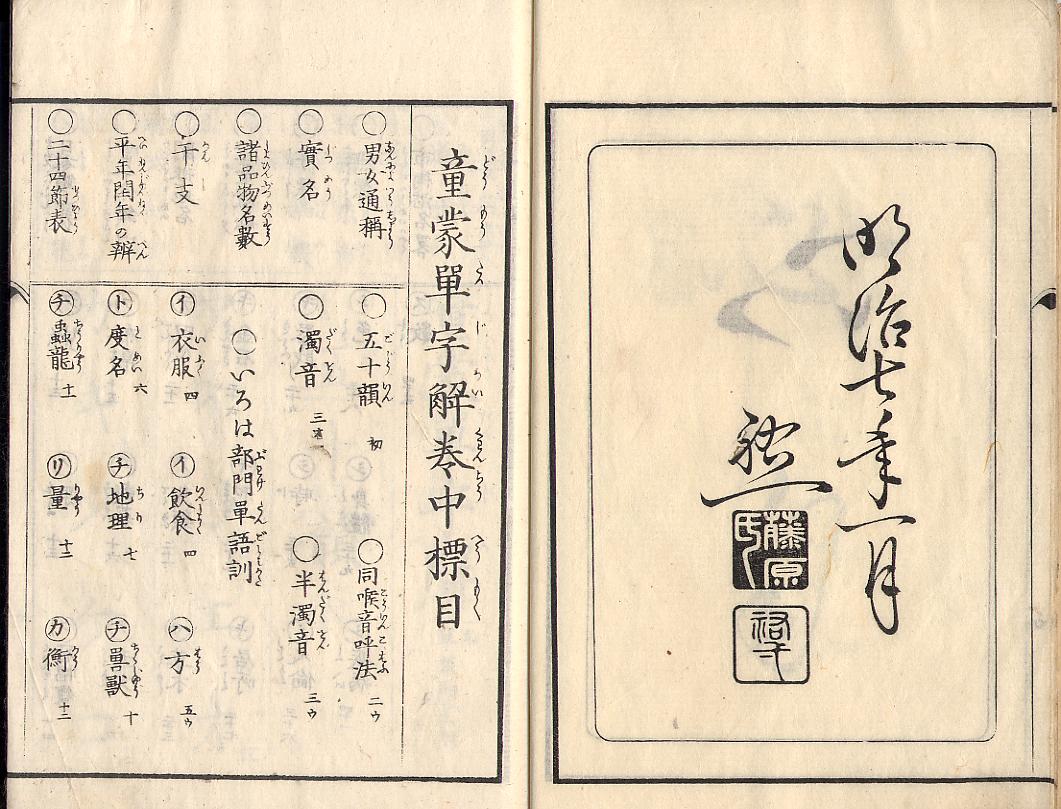 明治七年一月
藤原氏
童蒙單字解卷中標目
どう もう たん じ かい くわん ちう へう もく
○男女通稱
○實名
○諸品物名數
○干支
○平年閏年の辨
○二十四節表
○五十韻 初
○同喉音呼法 二ウ
○濁音 三
○半濁音 三ウ
○いろは部門單語訓
㋑衣服 四
㋑飲食 四
㋩方 五ウ
㋣度名 六
㋠地理 七
㋠畜獸 十
㋠蟲龍 十一
㋷量 十二
㋕衡 十二